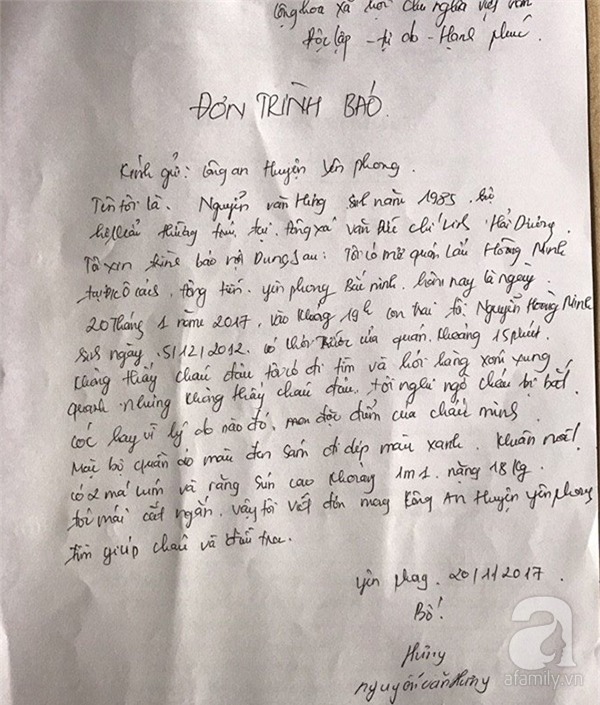 Cộng hòa xã hội chủ nghĩa việt nam
Độc lập - tự do - Hạnh phúc.
ĐƠN TRÌNH BÁO
Kính gửi: Công an Huyện yên phong.
Tên tôi là. Nguyễn văn Hưng sinh năm 1985.
thường trú tại. xã văn Đức chí Linh Hải Dương
Tôi xin trình báo nội Dung sau: Tôi có mở quán Lẩu Hồng Minh
tại Ô cách, Đông tiến. yên phong Bắc ninh. hôm nay là ngày.
20 tháng 1 năm 2017, vào khoảng 19h con trai tôi Nguyễn Hồng Minh
sinh ngày .5/12/2012. có chơi trước cửa quán. khoảng 15 phút.
không thấy cháu đâu tôi có đi tìm và hỏi hàng xóm xung
quanh nhưng không thấy cháu đâu. tôi nghi ngờ cháu bị bắt
cóc hay vì lý do nào đó. đặc điểm của cháu mình.
Mặc bộ quần áo màu đen sám đi dép màu xanh. khuân mặt
có 2 má lúm và răng sún cao khoảng 1m1. nặng 18kg.
tóc mái cắt ngắn. vậy tôi viết đơn mong Công An Huyện yên phong
tìm giúp cháu và điều tra.
yên phong. 20/1/2017.
Bố!
Hưng
nguyễn văn Hưng
a
afamily.vn